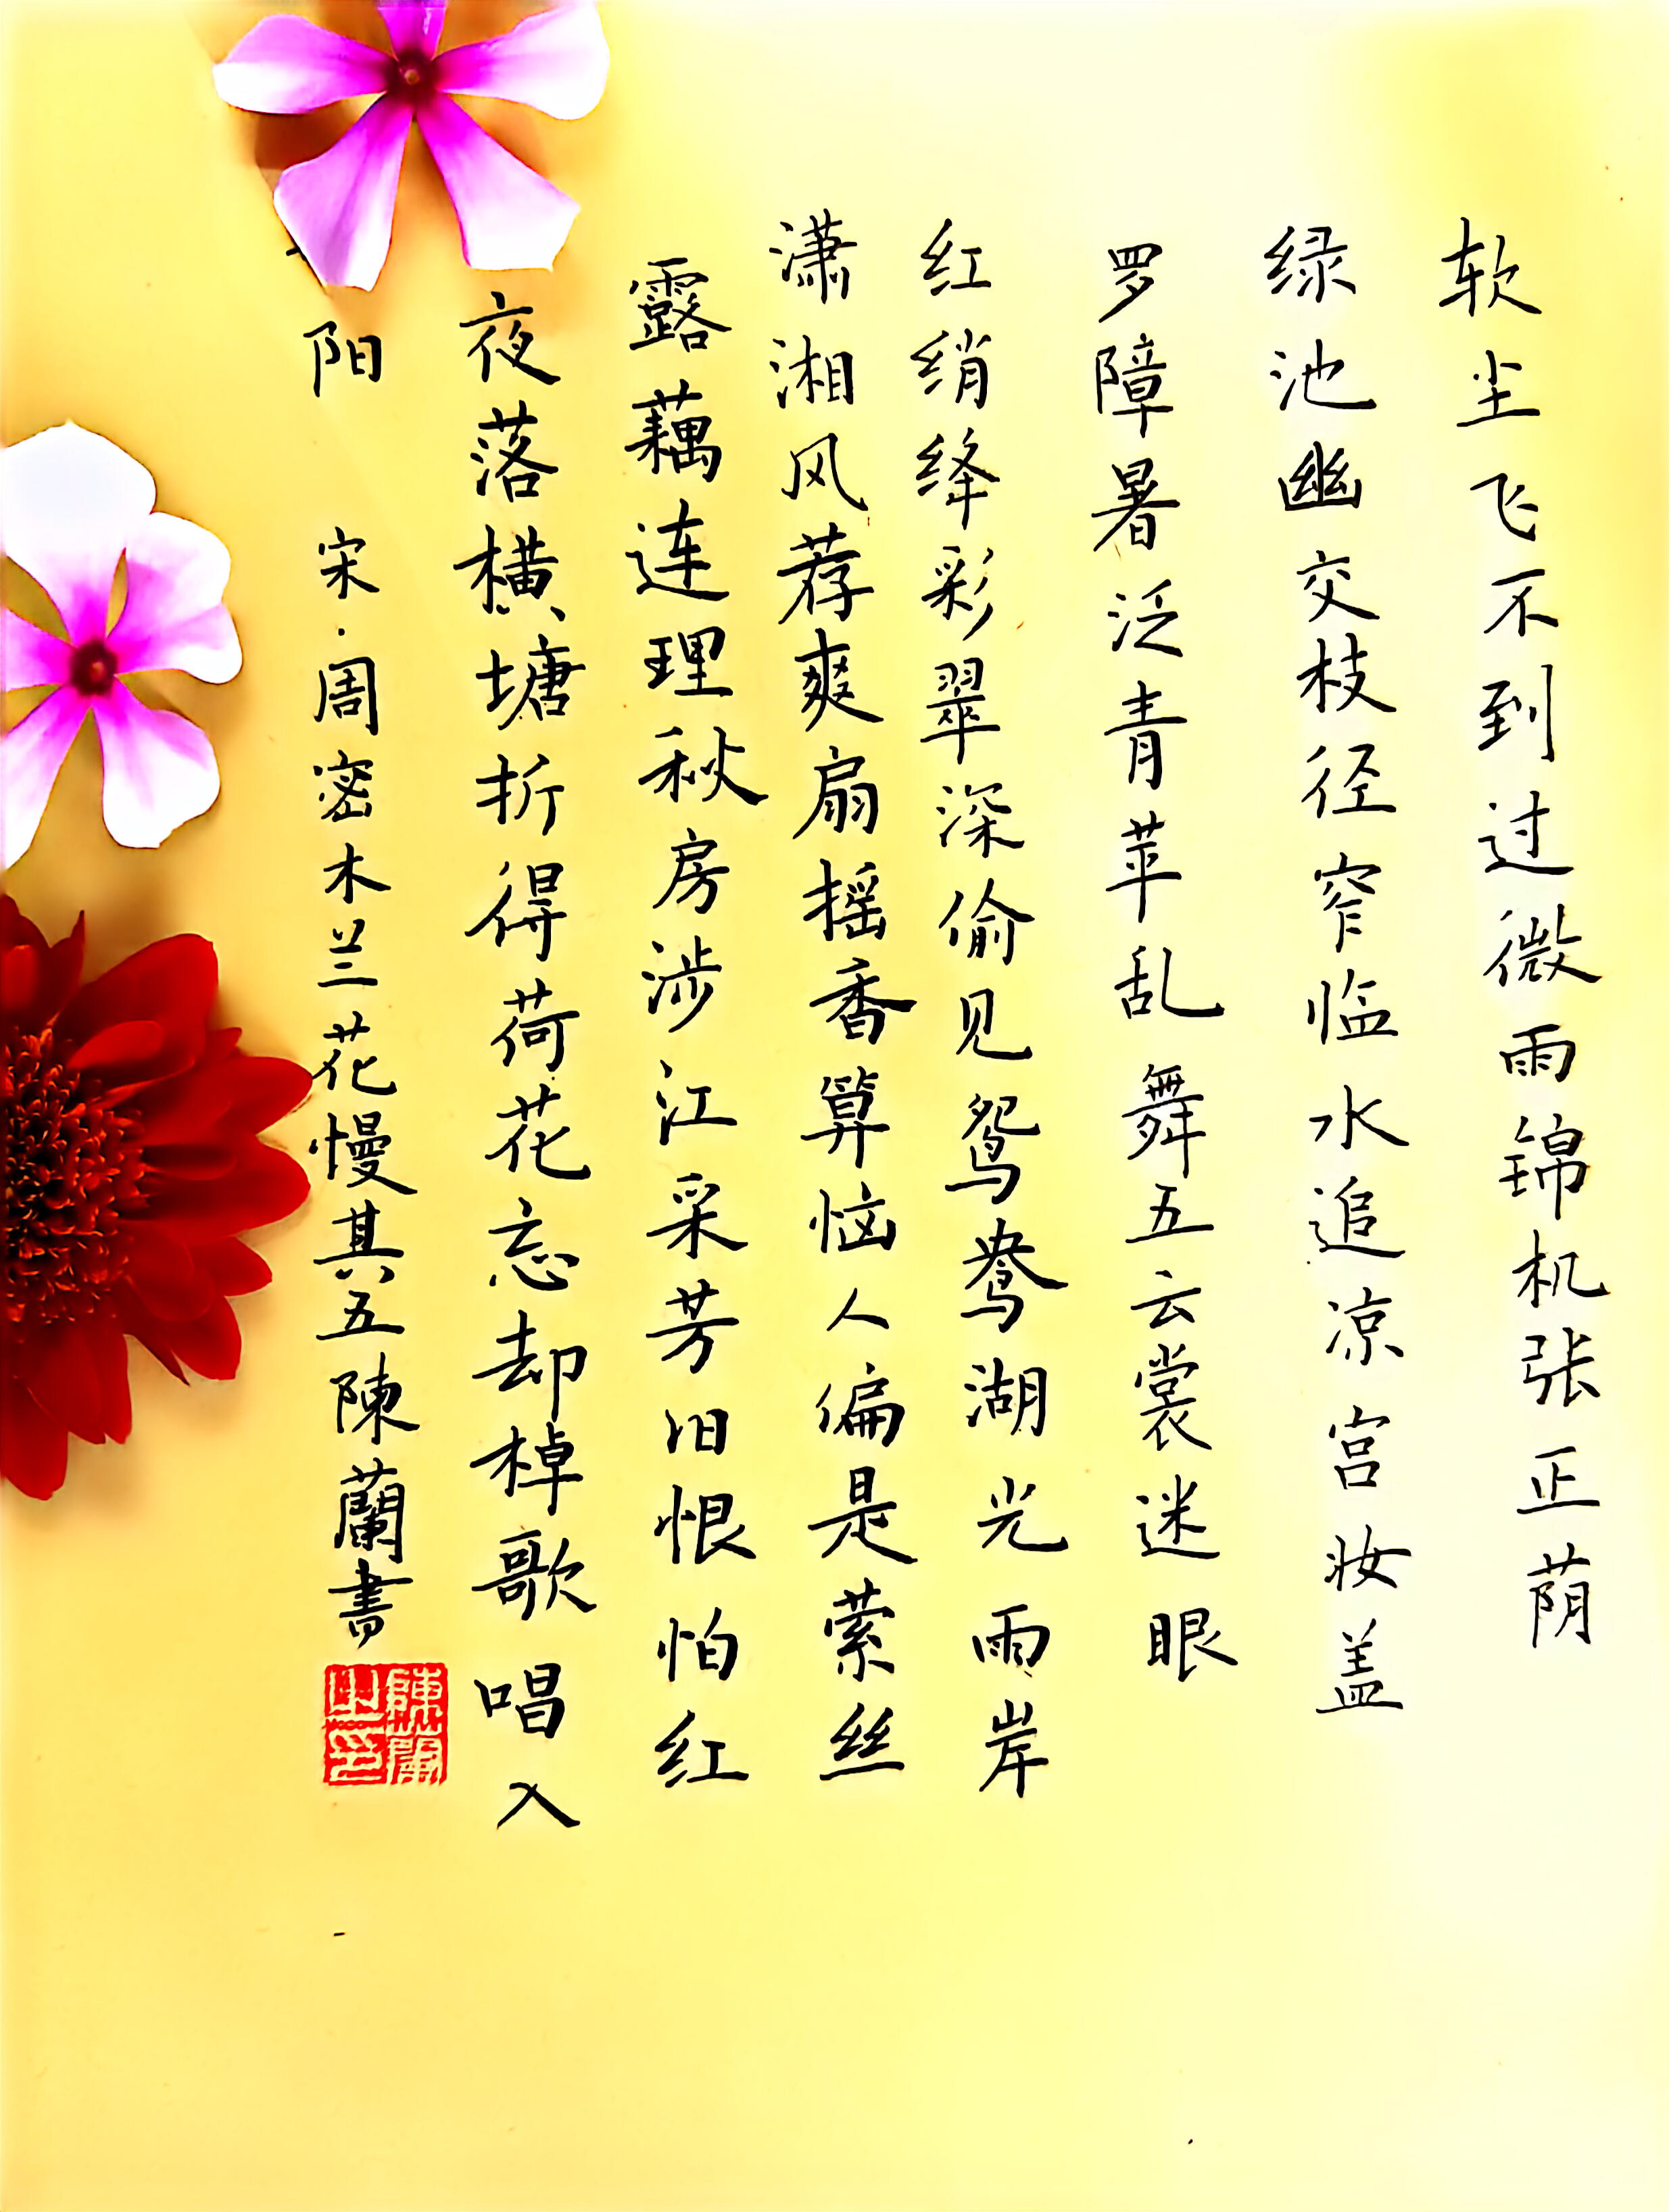 软尘飞不到过微雨锦机张正荫
绿池幽交枝径窄临水追凉宫妆盖
罗障暑泛青苹乱舞五云裳迷眼
红绡绛彩翠深偷见鸳鸯湖光雨岸
潇湘风荐爽扇摇香算恼人偏是萦丝
露藕连理秋房涉江采芳旧恨怕红
夜落横塘折得荷花忘却棹歌唱入
阳 宋·周密木兰花慢其五陳蘭書
陳蘭之印